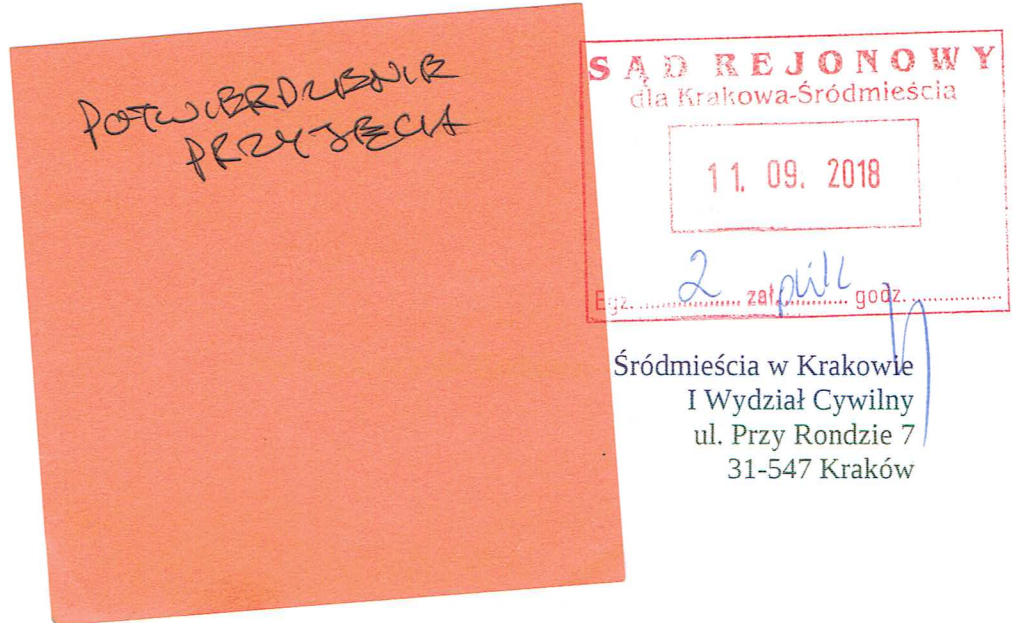 POTWIERDZENIE
PRZYJĘCIA
SĄD REJONOWY
dla Krakowa-Śródmieścia
11. 09. 2018
Egz. 2 zał. plik godz.
Śródmieścia w Krakowie
I Wydział Cywilny
ul. Przy Rondzie 7
31-547 Kraków